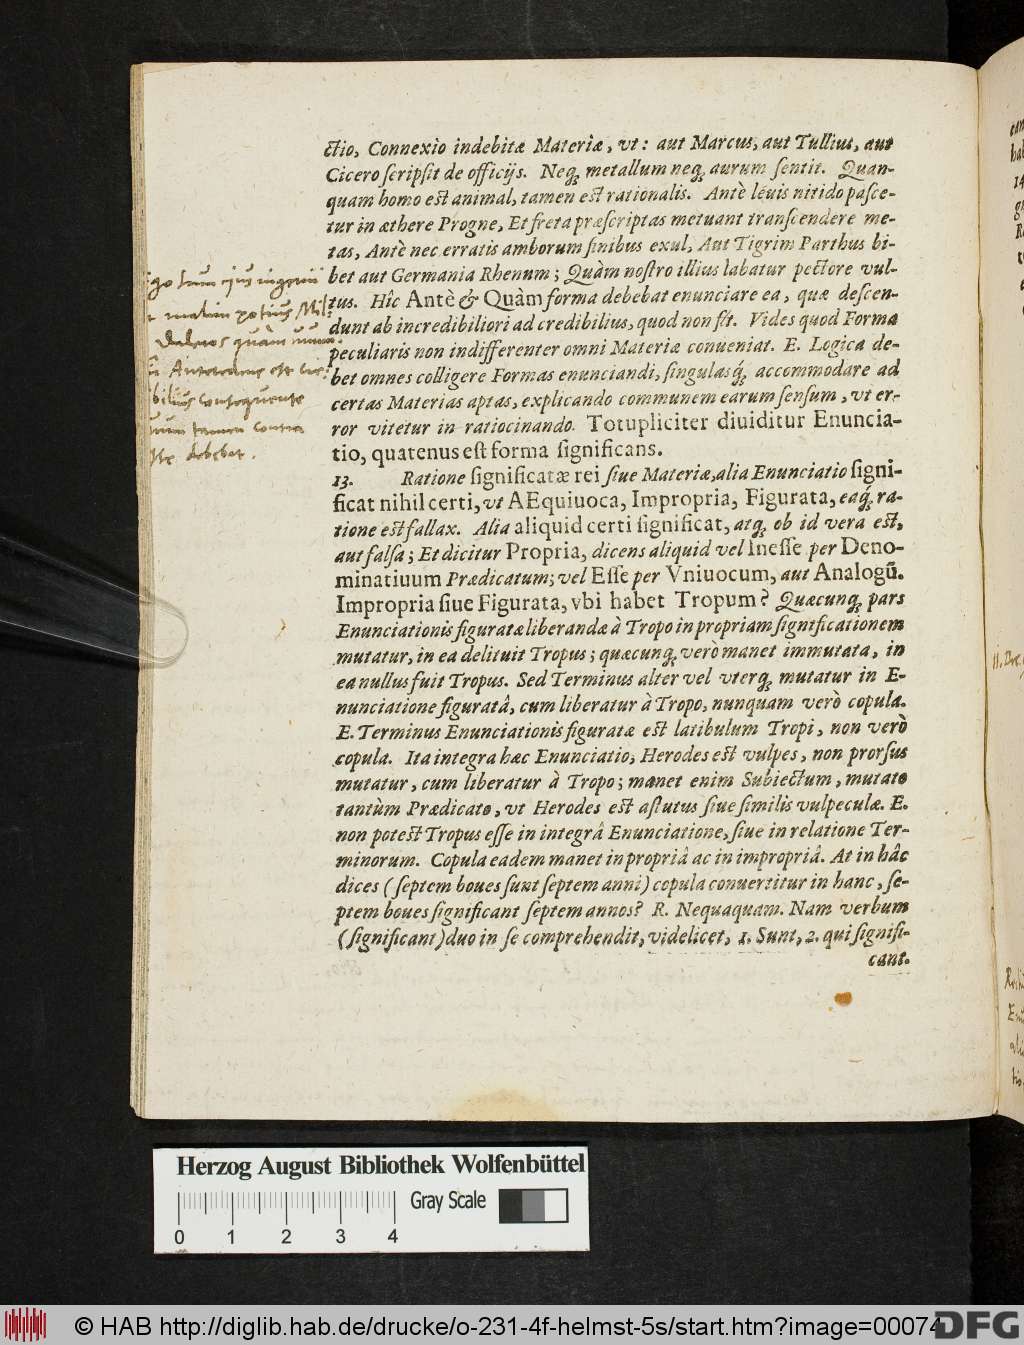 ctio, Connexio indebitæ Materiæ, vt: aut Marcus, aut Tullius, aut
Cicero scripsit de officijs. Neq; metallum neq; aurum sentit. Quan-
quam homo est animal, tamen est rationalis. Antè leuis nitido pasce-
tur in æthere Progne, Et freta præscriptas metuant transcendere me-
tas, Antè nec erratis amborum finibus exul, Aut Tigrim Parthus bi-
bet aut Germania Rhenum; Quàm nostro illius labatur pectore vul-
tus. Hîc Antè & Quàm forma debebat enunciare ea, quæ descen-
dunt ab incredibiliori ad credibilius, quod non fit. Vides quod Forma
peculiaris non indifferenter omni Materiæ conueniat. E. Logica de-
bet omnes colligere Formas enunciandi, singulasq́; accommodare ad
certas Materias aptas, explicando communem earum sensum, vt er-
ror vitetur in ratiocinando. Totupliciter diuiditur Enuncia-
tio, quatenus est forma significans.
13. Ratione significatæ rei siue Materiæ, alia Enunciatio signi-
ficat nihil certi, vt AEquiuoca, Impropria, Figurata, eaq́; ra-
tione est fallax. Alia aliquid certi significat, atq; ob id vera est,
aut falsa; Et dicitur Propria, dicens aliquid vel Inesse per Deno-
minatiuum Prædicatum; vel Esse per Vniuocum, aut Analogũ.
Impropria siue Figurata, vbi habet Tropum? Quæcunq; pars
Enunciationis figuratæ liberandæ à Tropo in propriam significationem
mutatur, in ea delituit Tropus; quæcunq; verò manet immutata, in
ea nullus fuit Tropus. Sed Terminus alter vel vterq; mutatur in E-
nunciatione figuratâ, cum liberatur à Tropo, nunquam verò copula.
E. Terminus Enunciationis figuratæ est latibulum Tropi, non verò
copula. Ita integra hæc Enunciatio, Herodes est vulpes, non prorsus
mutatur, cum liberatur à Tropo; manet enim Subiectum, mutato
tantùm Prædicato, vt Herodes est astutus siue similis vulpeculæ. E.
non potest Tropus esse in integrâ Enunciatione, siue in relatione Ter-
minorum. Copula eadem manet in propriâ ac in impropriâ. At in hâc
dices (septem boues sunt septem anni) copula conuertitur in hanc, se-
ptem boues significant septem annos? R. Nequaquam. Nam verbum
(significant) duo in se comprehendit, videlicet, 1. Sunt, 2. qui signifi-
cant.
Antecedens est
consequente
tamen contra
debebat.
Herzog August Bibliothek Wolfenbüttel
Gray Scale
0 1 2 3 4
© HAB http://diglib.hab.de/drucke/o-231-4f-helmst-5s/start.htm?image=00074
DFG